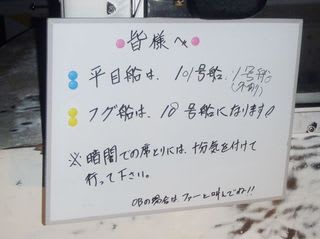 皆様へ
平目船は、101号船、1号船
フグ船は、18号船になります!!
※暗闇での席とりには、十分気を付けて
行って下さい。
OBの場合は、ファーと叫んでね!!